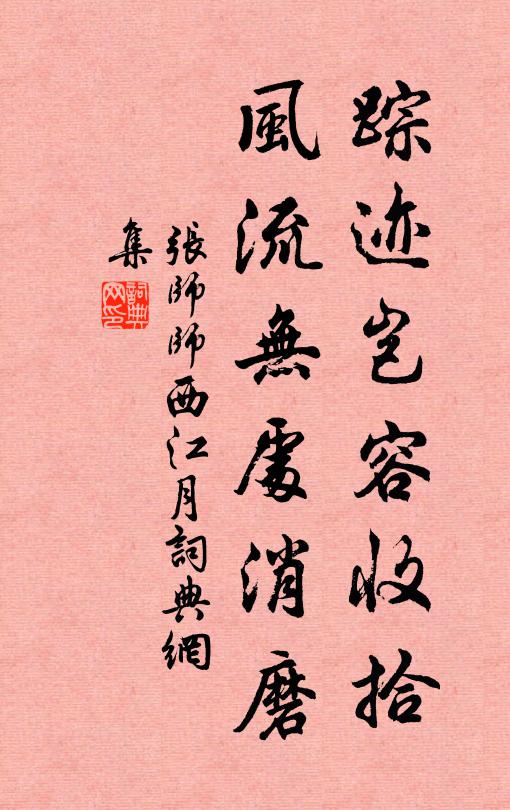 踪迹岂容收拾
風流無處消磨
張師師西江月詞典網
集
詞典網印